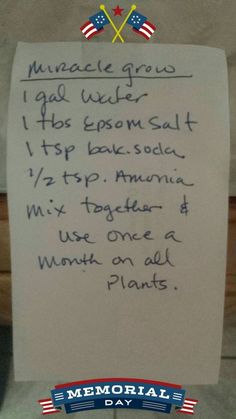 miracle grow
1 gal water
1 tbs Epsom Salt
1 tsp bak. soda
1/2 tsp. Amonia
mix together &
use once a
month on all
Plants.
MEMORIAL
DAY